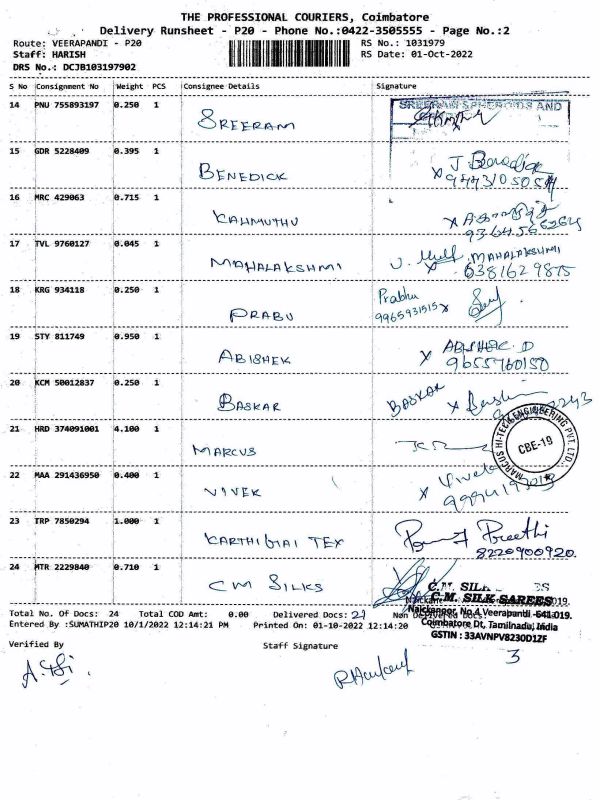 THE PROFESSIONAL COURIERS, Coimbatore
Delivery Runsheet - P20 - Phone No.:0422-3505555 - Page No.:2
Route: VEERAPANDI - P20 RS No.: 1031979
Staff: HARISH RS Date: 01-Oct-2022
DRS No.: DCJB103197902
S No Consignment No Weight PCS Consignee Details Signature
14 PNU 755893197 0.250 1 SREERAM SREERAM SPHEROIDS AND
15 GDR 5228409 0.395 1 BENEDICK J
16 MRC 429063 0.715 1 KAHMUTHU
17 TVL 9760127 0.045 1 MAHALAKSHMI MAHALAKSHMI
6381629875
18 KRG 934118 0.250 1 PRABU Prabhu
9965931515 x
19 STY 811749 0.950 1 ABISHEK x ABISHEC. D
9655760150
20 KCM 50012837 0.250 1 BASKAR BASKAR x
21 HRD 374091001 4.100 1 MARCUS MARCUS HI-TECH ENGINEERING PVT. LTD.,
CBE-19
22 MAA 291436950 0.400 1 VIVEK x Vivek
23 TRP 7850294 1.000 1 KARTHIGAI TEX Preethi
8220900920.
24 MTR 2229840 0.710 1 CM SILKS C.M. SILK SAREES
Naickenpor, No.4 Veerapandi -641 019.
Coimbatore Dt, Tamilnadu, India
GSTIN : 33AVNPV8230D1ZF
Total No. Of Docs: 24 Total COD Amt: 0.00 Delivered Docs: 21
Entered By :SUMATHIP20 10/1/2022 12:14:21 PM Printed On: 01-10-2022 12:14:20
3
Verified By Staff Signature